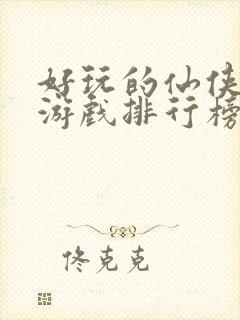 好玩的仙侠
游戏排行榜
佟克克